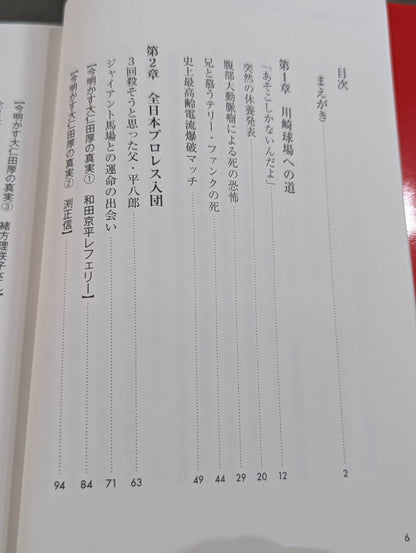 目次
まえがき 2
第1章 川崎球場への道
「あそこしかないんだよ」 12
突然の休養発表 20
腹部大動脈瘤による死の恐怖 29
兄と慕うテリー・ファンクの死 44
史上最高齢電流爆破マッチ 49
第2章 全日本プロレス入団
3回殺そうと思った父・平八郎 63
ジャイアント馬場との運命の出会い 71
【今明かす大仁田厚の真実① 和田京平レフェリー】 84
【今明かす大仁田厚の真実② 渕正信】 94
【今明かす大仁田厚の真実③ 緒方理咲子さん】
6